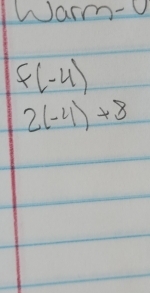 Warm-U
f(-4)
2(-4)+8